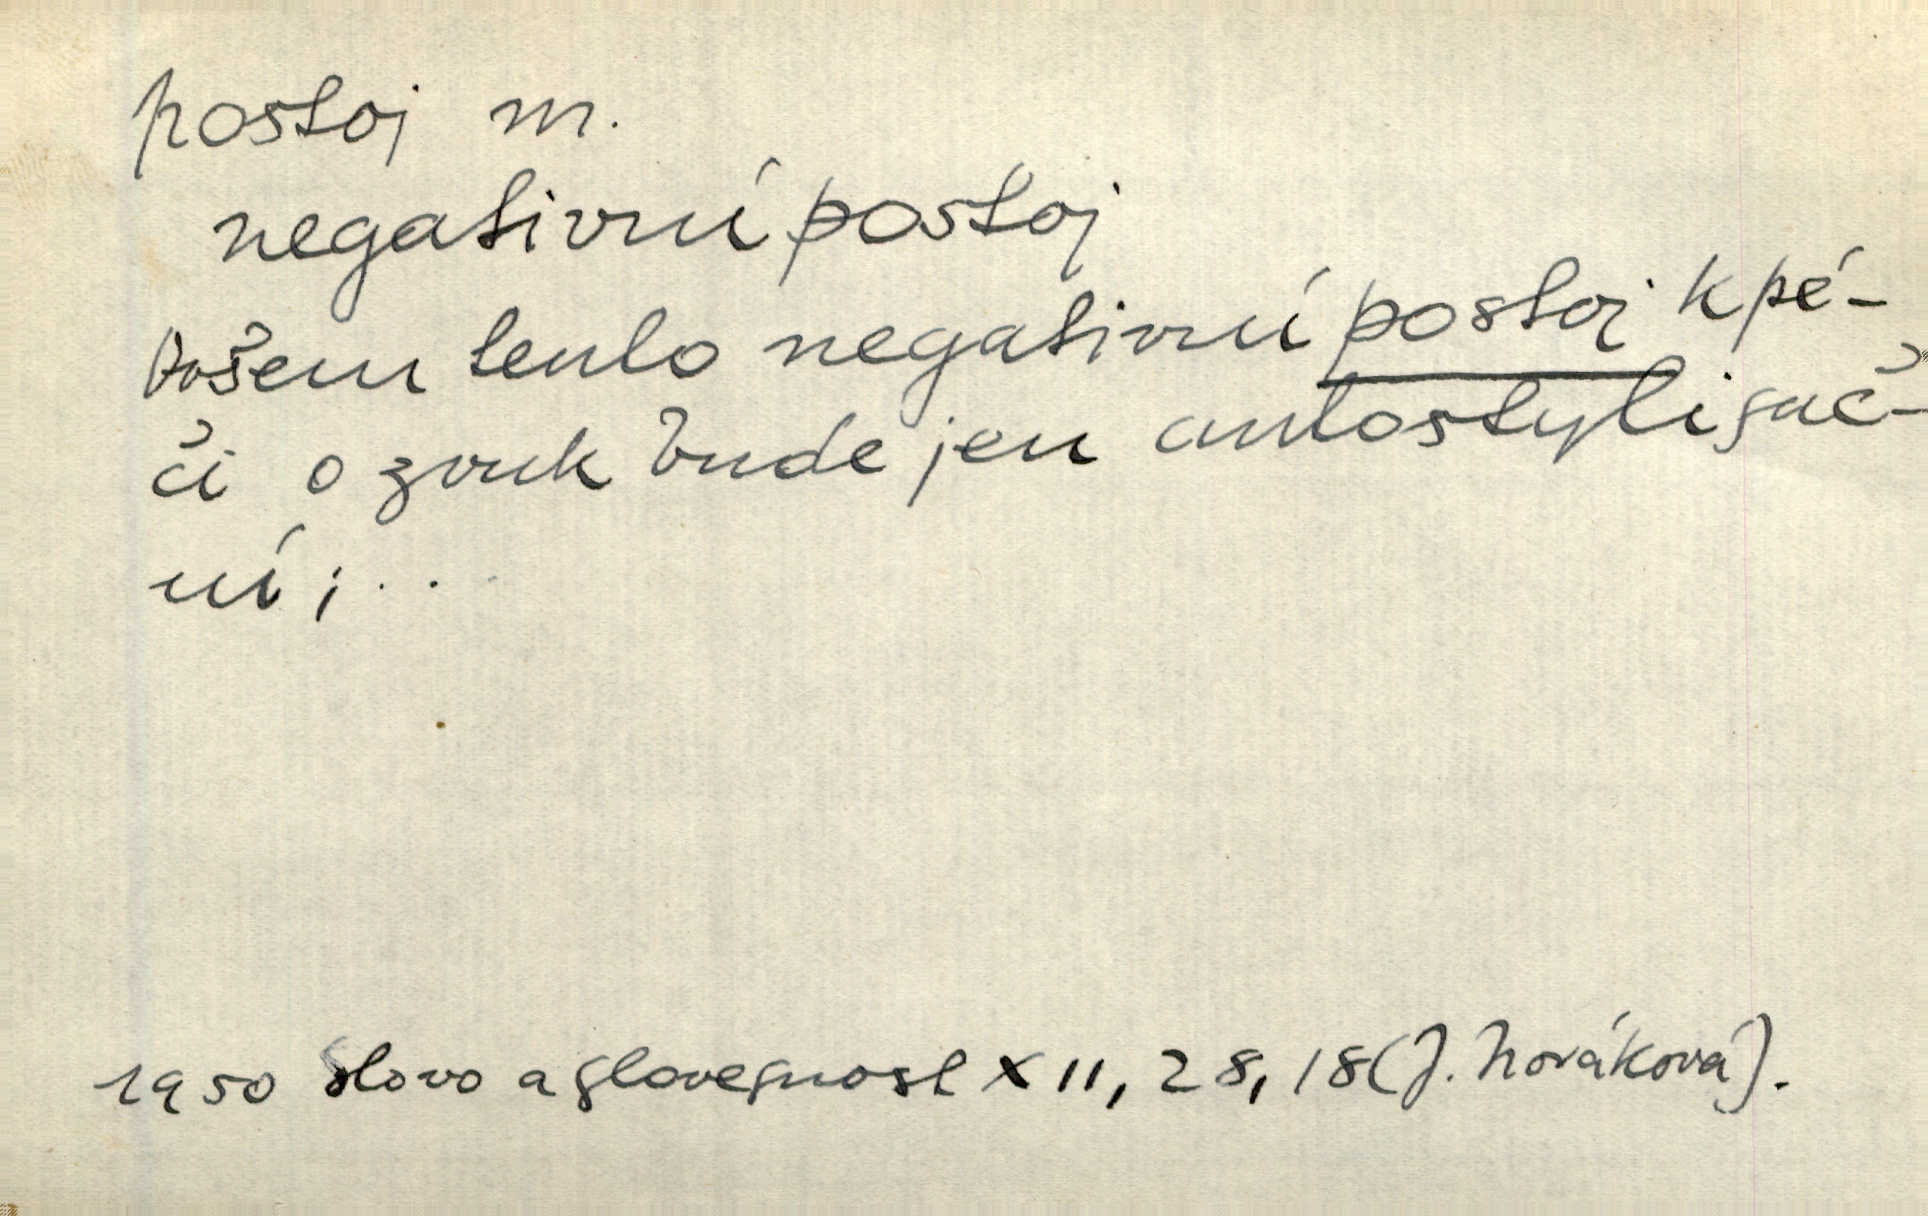 postoj m.
negativní postoj
Ovšem tento negativní postoj k pé-
či o zvuk bude jen autostylisač-
ní; . . .
1950 Slovo a slovesnost XII, 28, 18 (J. Nováková).